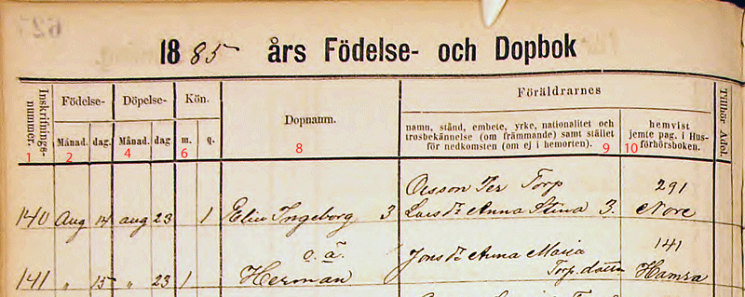 1885 års Födelse- och Dopbok
Inskrifnings-nummer.
Födelse-
Döpelse-
Kön.
Dopnamn.
Föräldrarnes
Tillhör Adel.
Månad. dag. Månad. dag m. q.
namn, stånd, embete, yrke, nationalitet och
trosbekännelse (om främmande) samt stället
för nedkomsten (om ej i hemorten).
hemvist
jemte pag. i Hus-
förhörsboken.
1 2 4 6 8 9 10
Olsson Per Torp 291
140 Aug 14 aug 23 1 Elin Ingeborg 3 Lars Dr Anna Stina 3. Nore
o. ä. Jons Dr Anna Maria 141
141 " 15 " 23 1 Herman Torp. dotter Hamra